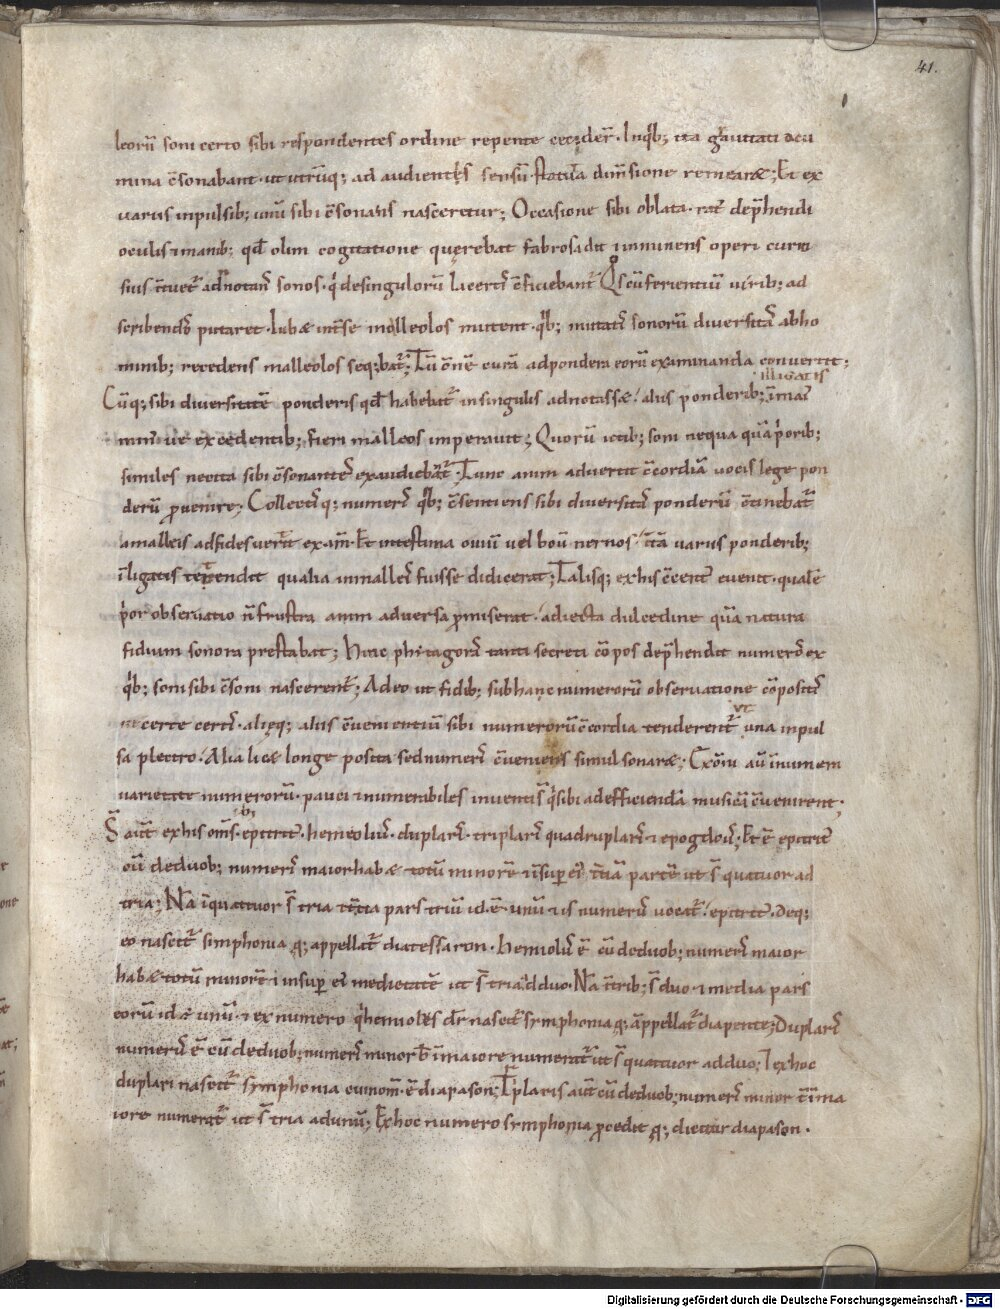 41.
leorū soni certo sibi respondentes ordine repente ceciderʼ. In qͥb; ita grauitati acu
mina c̄sonabant. ut utrūq; ad audientis sensū statuta dim̄sione remearet; Et ex
variis inpulsib; unū sibi c̄sonans nasceretur; Occasione sibi oblata. ratʼ dep̄hendi
oculis & manib; qd̄ olim cogitatione querebat fabros adit & imminens operi curio
sius t̄uetʼ adnotans sonos. qͥ de singulorū lacertis c̄ficiebantʼ Qͦs cū ferientiū virib; ad
scribendos putaret. Iubet int̄ se malleolos mutent. qͥb; mutatis sonorū diversitas ab ho
minib; recedens malleolos seq;batʼ; Tū om̄nē curā ad pondera eorū examinanda convertit;
illigatis
Cūq; sibi diversitatē ponderis qd̄ habebatʼ in singulis adnotasset aliis ponderib; in mai
minʼue excedentib; fieri malleos imperavit; Quorū ictib; soni nequaquā pͥorib;
similes nec ita sibi c̄sonantes exaudiebantʼ. Tunc anim advertit c̄cordiā vocis lege pon
derū p̄venire; Collectisq; numeris qͥb; c̄sentiens sibi diversitas ponderū c̄tinebatʼ
a malleis ad fides vertit exam̄. Et intestina oviū vel boū nervos. tā variis ponderib;
illigatis tetendit qualia in malleis fuisse didicerat; Talisq; ex his c̄centʼ evenit. qualē
pͥor observatio n̄ frustra anim adversa p̄miserat. adiecta dulcedine quā natura
fidium sonora prestabat; Hinc phitagoras tanti secreti cōpos dep̄hendit numeros ex
qͥb; soni sibi c̄soni nascerentʼ; Adeo ut fidib; sub hanc numerorū observatione cōpositis
vt
certe certis. alięq; aliis c̄venientiū sibi numerorū c̄cordia tenderentʼ una inpul
sa plectro. Alia licet longe posita sed numeris c̄veniens simul sonaret; Ex om̄i au in numerā
varietate numerorū. pauci & numerabiles inventi s̄ qͥ sibi ad efficiendā musicā c̄venirent.
S̄ autʼ ex his om̄s. epitritʼ. hemeoliusʼ. duplarisʼ. triplarisʼ quadruplarisʼ & epogdousʼ; Et ē epitritʼ
cū de duob; numeris maior habet totū minorē & insuperʼ ei t̄tiā partē ut s̄ quatuor ad
tria; Nā in quattuor s̄ tria & t̄tia pars triū id ē. unū & is numerus vocatʼ. epitritʼ. Deq;
eo nascitʼ simphonia q; appellatʼ diatessaron. hemiolius ē cū de duob; numeris maior
habet totū minorē & insuperʼ ei medietatē ut s̄ tria ad duo. Nā in trib; s̄ duo & media pars
eorū id ē unū. & ex numero qͥ hemiolios dr̄ nascitʼ symphonia q; appellatʼ diapente; Duplaris
numerus ē cū de duob; numeris minor b̄ in maiore numeratʼ ut s̄ quattuor ad duo; & ex hoc
duplari nascitʼ symphonia cui nom̄ ē diapason; Tͥplaris autʼ cū de duob; numeris minor t̄ in ma
iore numeratʼ ut s̄ tria ad unū; Ex hoc numero symphonia p̄cedit q; dicitur diapason.
Digitalisierung gefördert durch die Deutsche Forschungsgemeinschaft - DFG